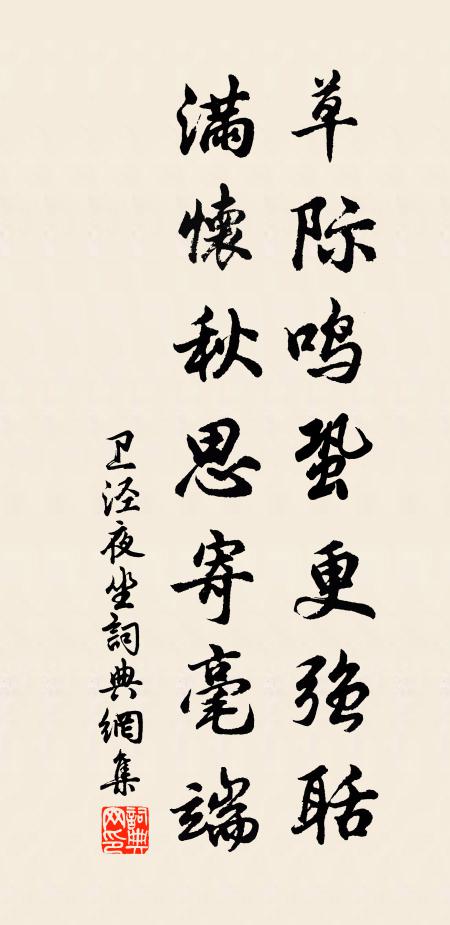 草际鸣蛩更强聒
满懷秋思寄毫端
卫泾夜坐詞典網集
詞典网印